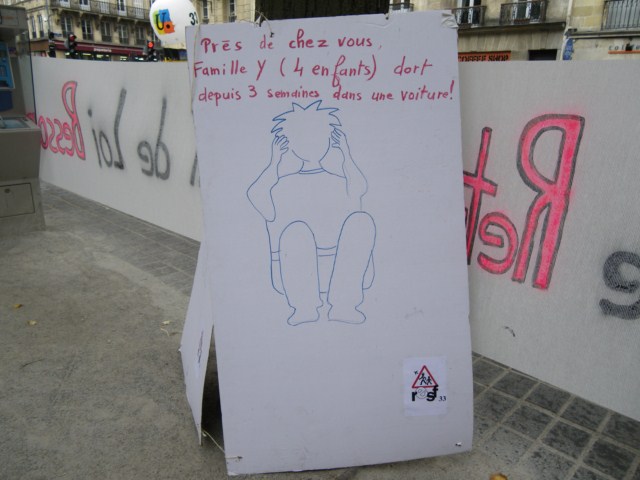 Près de chez vous,
Famille Y (4 enfants) dort
depuis 3 semaines dans une voiture!
resf 33
Besso
de Loi
Ret
COFFEE SHOP